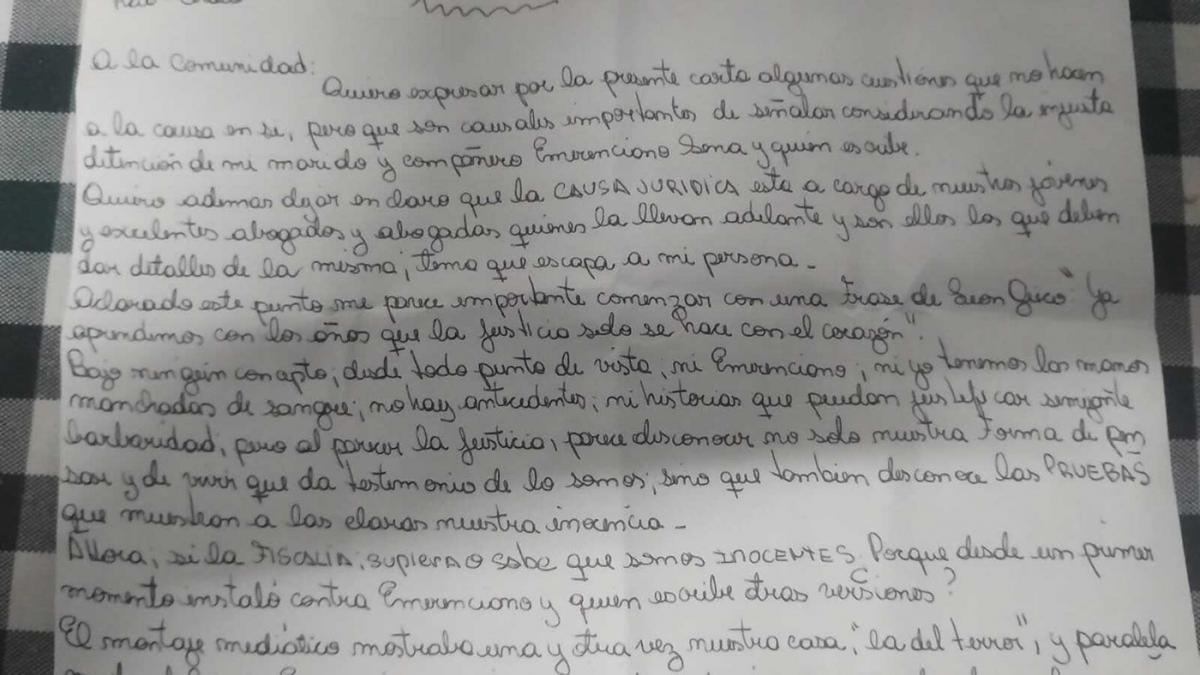 A la Comunidad:
Quiero expresar por la presente carta algunas cuestiones que no hacen
a la causa en si, pero que son causales importantes de señalar considerando la injusta
detención de mi marido y compañero Emerenciano Sena y quien escribe.
Quiero ademas dejar en claro que la CAUSA JURIDICA esta a cargo de nuestros jóvenes
y excelentes abogados y abogadas quienes la llevan adelante y son ellos los que deben
dar detalles de la misma, tema que escapa a mi persona -
Aclarado este punto me parece importante comenzar con una frase de "Ya
aprendimos con los años que la justicia solo se hace con el corazón".
Bajo ningún concepto, desde todo punto de vista, ni Emerenciano, ni yo tenemos las manos
manchadas de sangre; no hay antecedentes; ni historias que puedan justificar semejante
barbaridad, pero al parecer la justicia, parece desconocer no solo nuestra forma de pen
sar y de vivir que da testimonio de lo somos, sino que tambien desconoce las PRUEBAS
que muestran a las claras nuestra inocencia -
Ahora, si la FISCALIA, SUPIERA O sabe que somos INOCENTES. Porque desde un primer
momento instaló contra Emerenciano y quien escribe otras versiones?
El montaje mediático mostraba una y otra vez nuestra casa, "la del terror", y paralela